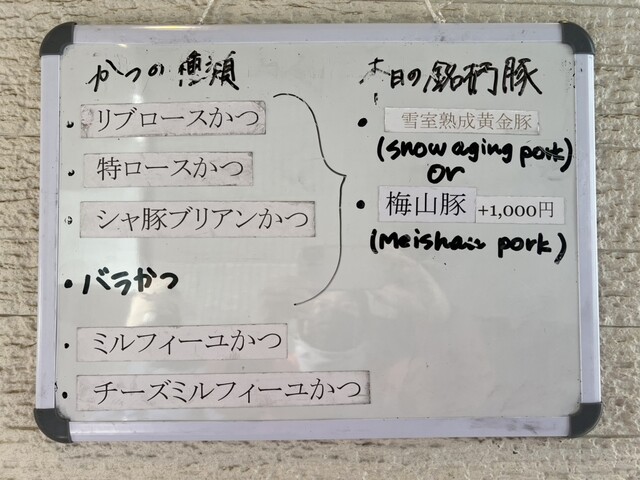 かつの種類
• リブロースかつ
• 特ロースかつ
• シャ豚ブリアンかつ
• バラかつ
• ミルフィーユかつ
• チーズミルフィーユかつ
本日の銘柄豚
• 雪室熟成黄金豚
(snow aging pork)
or
• 梅山豚 +1,000円
(Meishan pork)